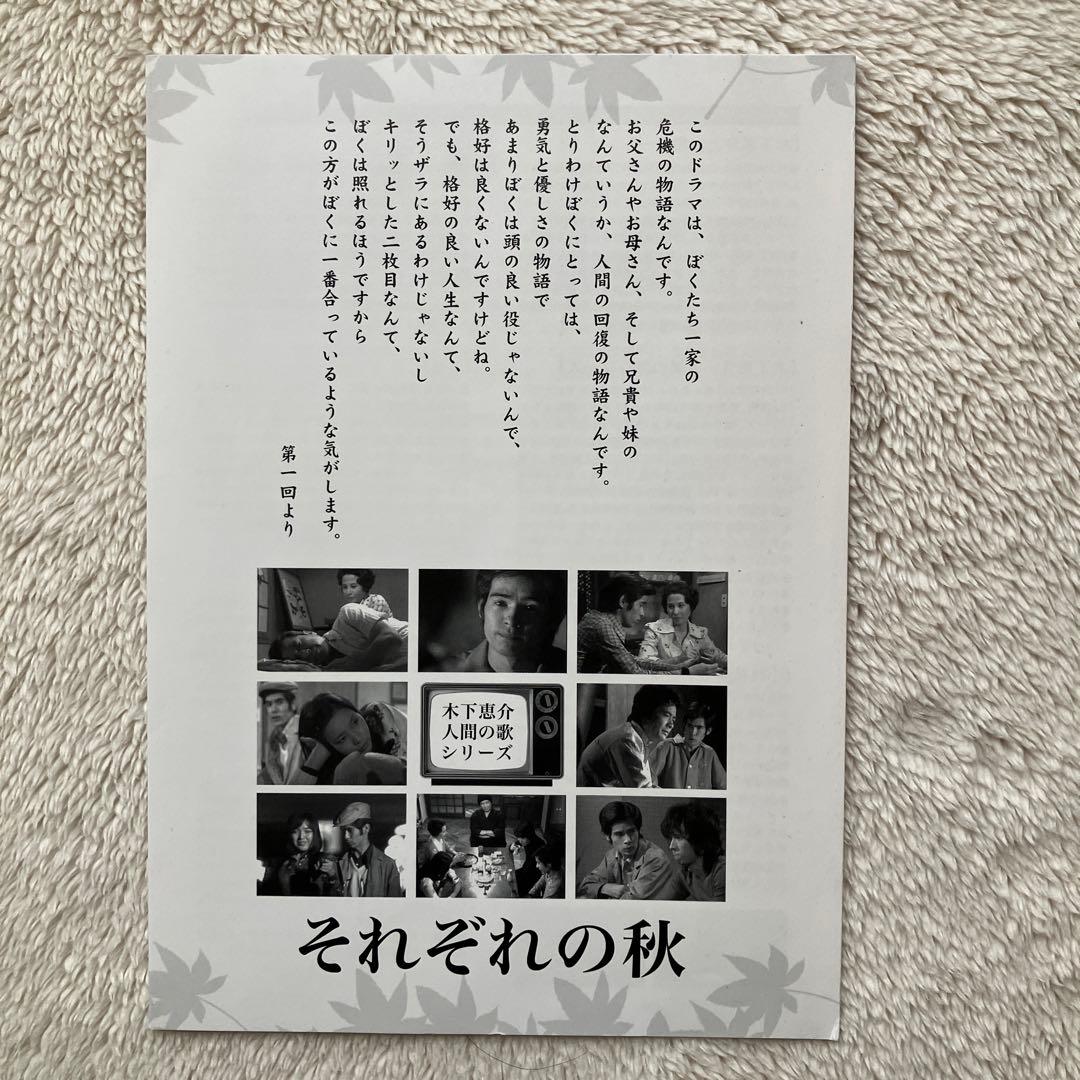 このドラマは、ぼくたち一家の
危機の物語なんです。
お父さんやお母さん、そして兄貴や妹の
なんていうか、人間の回復の物語なんです。
とりわけぼくにとっては、
勇気と優しさの物語で
あまりぼくは頭の良い役じゃないんで、
格好は良くないんですけどね。
でも、格好の良い人生なんて、
そうザラにあるわけじゃないし
キリッとした二枚目なんて、
ぼくは照れるほうですから
この方がぼくに一番合っているような気がします。
第一回より
木下恵介
人間の歌
シリーズ
それぞれの秋